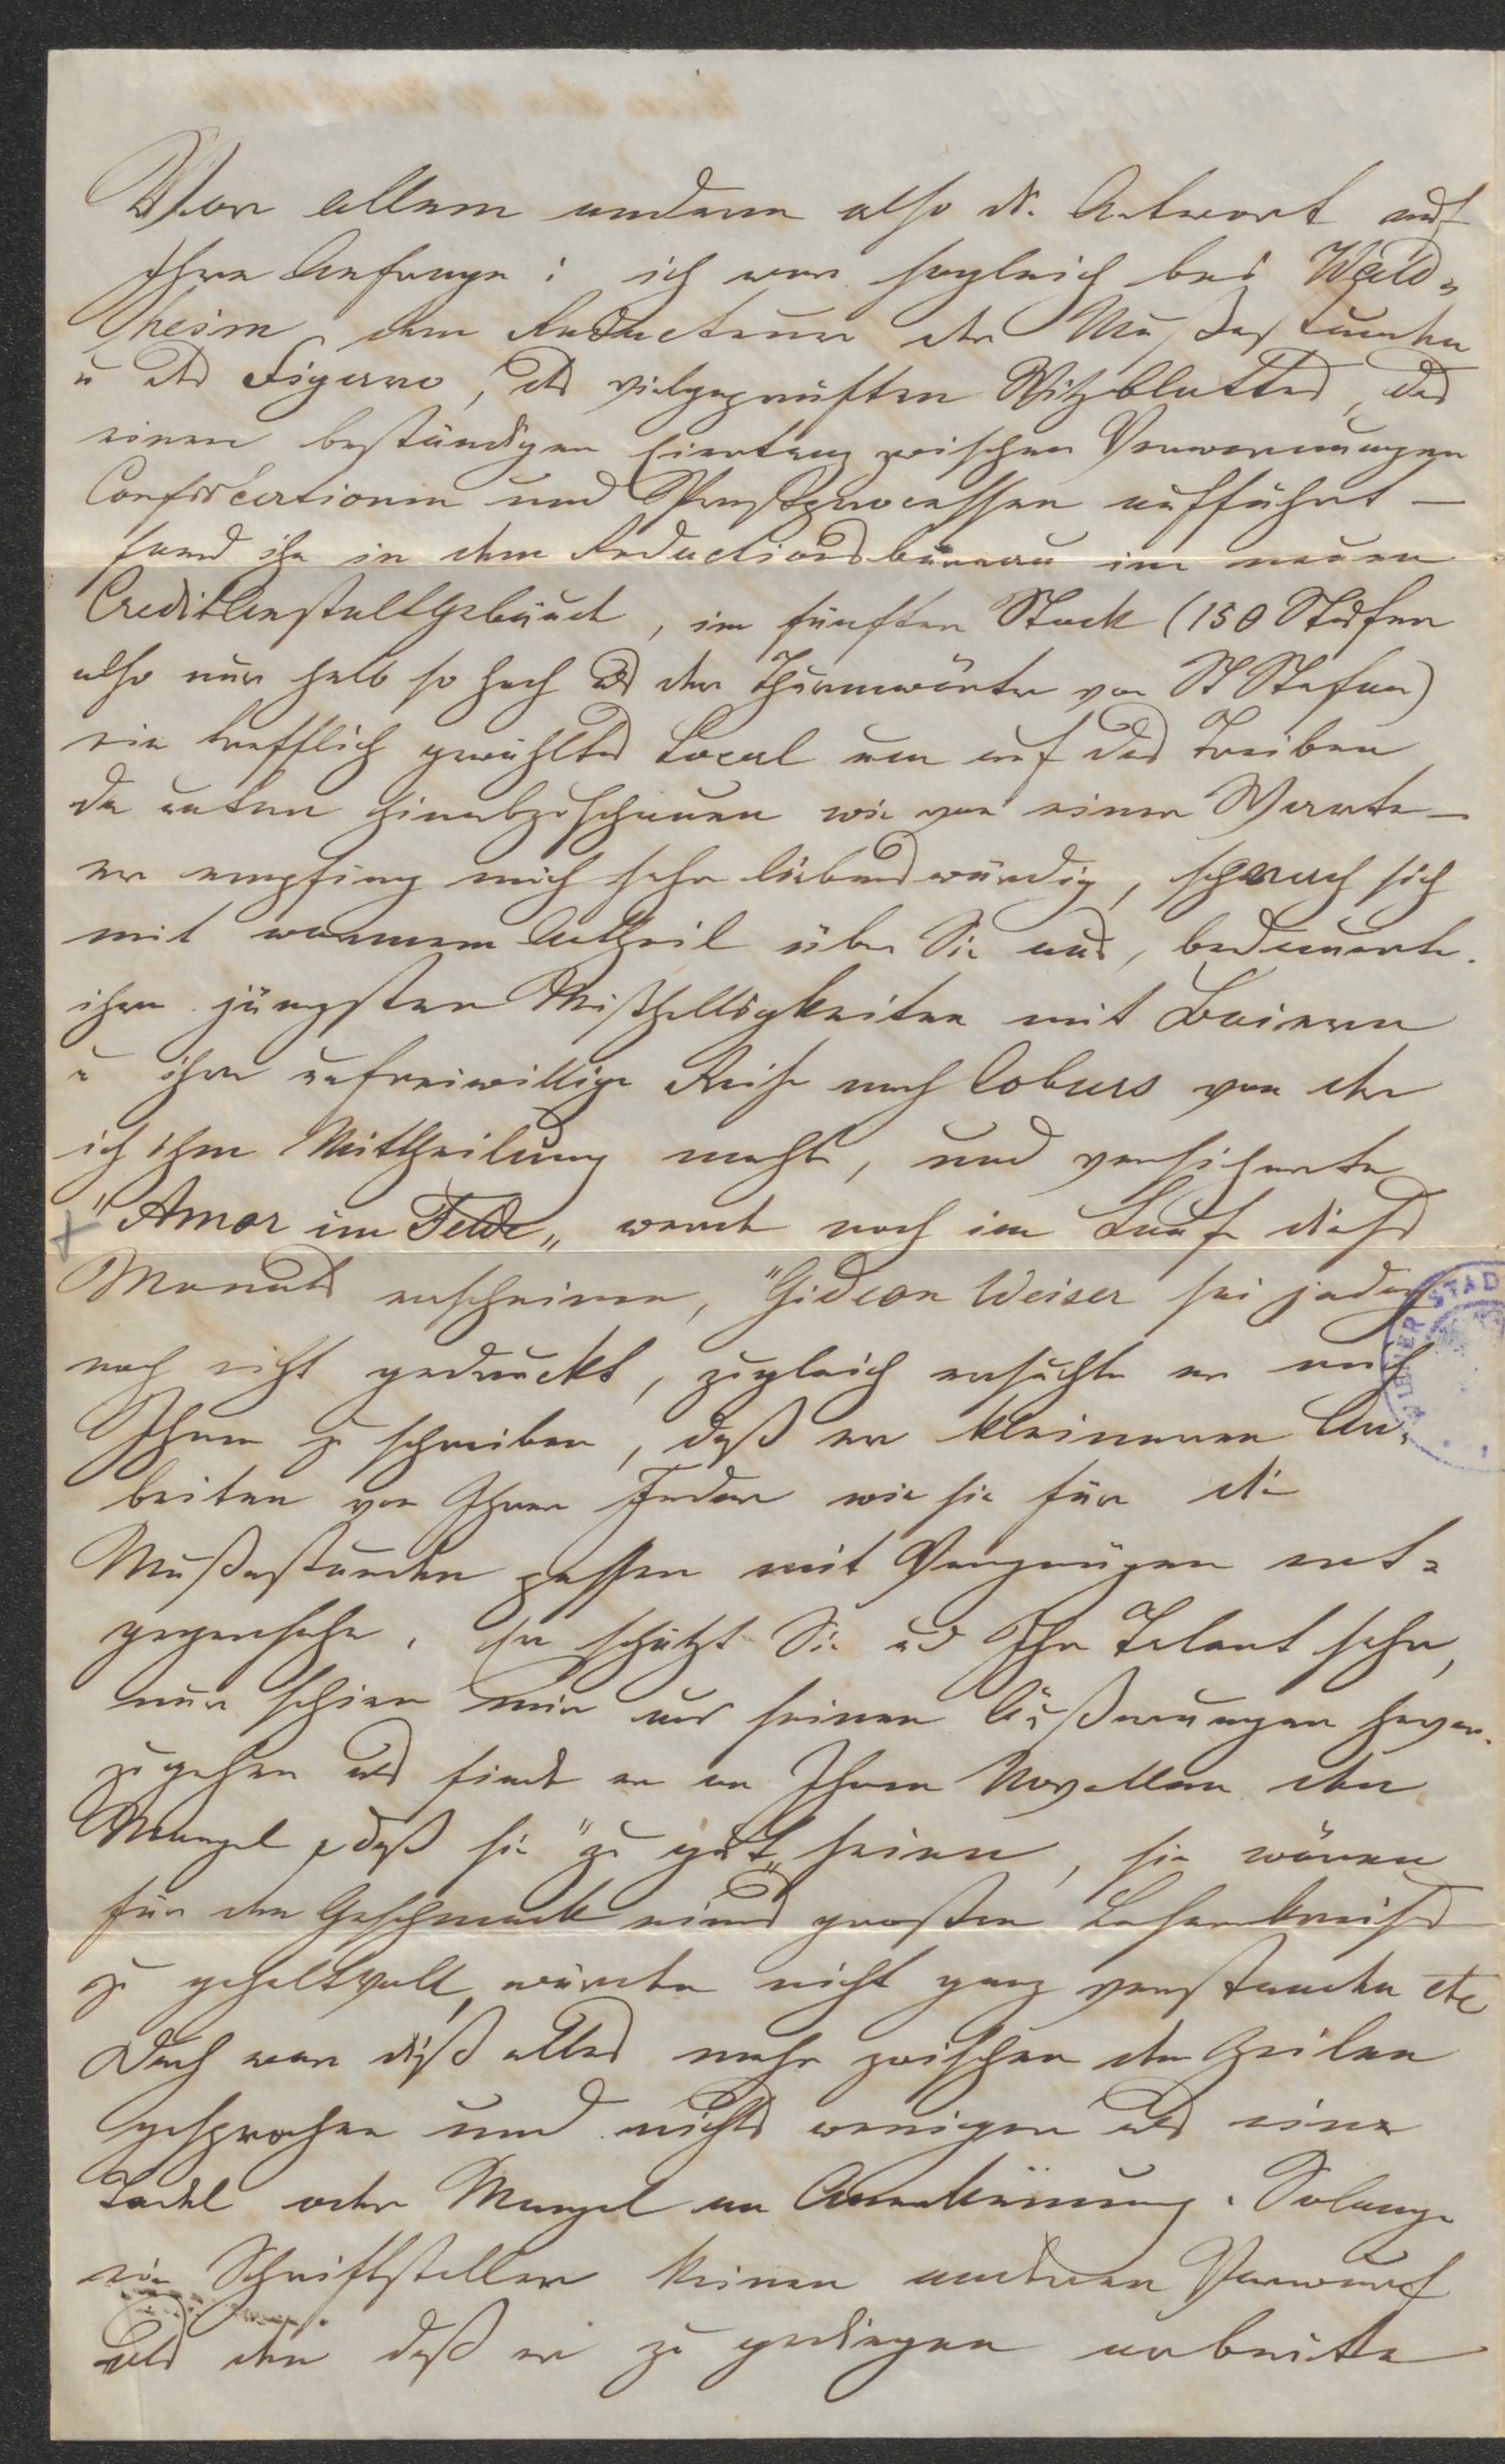 Vor allem andern also die Antwort auf
Ihre Anfrage: ich war sogleich bei Wald-
heim, dem Redacteur der Mußestunden
u des Figaro, des vielgeprüften Witzblattes, das
einen beständigen Eiertanz zwischen Verwarnungen
Confiscationen und Preßprocessen aufführt —
fand ihn in dem Redactionsbüreau im neuen
Creditanstaltgebäude, im fünften Stock (150 Stufen
also nur halb so hoch als der Thurmwärter von St Stefan)
ein trefflich gewähltes Local um auf das Treiben
da unten hinabzuschauen wie von einer Warte —
er empfing mich sehr liebenswürdig, sprach sich
mit warmem Antheil über Sie aus, bedauerte
ihre jüngsten Mißhelligkeiten mit Baiern
u ihre unfreiwillige Reise nach Coburg von der
ich ihm Mittheilung machte, und versicherte
"Amor im Felde" werde noch im Laufe dieses
Monats erscheinen, "Gideon Weiser sei jedoch
noch nicht gedruckt, zugleich ersuchte er mich
Ihnen zu schreiben, daß er kleineren Ar-
beiten von Ihrer Feder wie sie für die
Mußestunden passen mit Vergnügen ent-
gegensehe. Er schätzt Sie und Ihr Talent sehr,
nur schien mir aus seinen Äußerungen hervor-
zugehen als finde er an Ihren Novellen den
Mangel, daß sie "zu gut" seien, sie wären
für den Geschmack eines großen Leserkreises
zu gehaltvoll, würden nicht ganz verstanden etc
Doch war dieß alles mehr zwischen den Zeilen
gesprochen und nichts weniger als eine
Tadel oder Mangel an Anerkennung. Solange
ein Schriftsteller keinen anderen Vorwurf
als den daß er zu gediegen arbeite
WIENER STAD